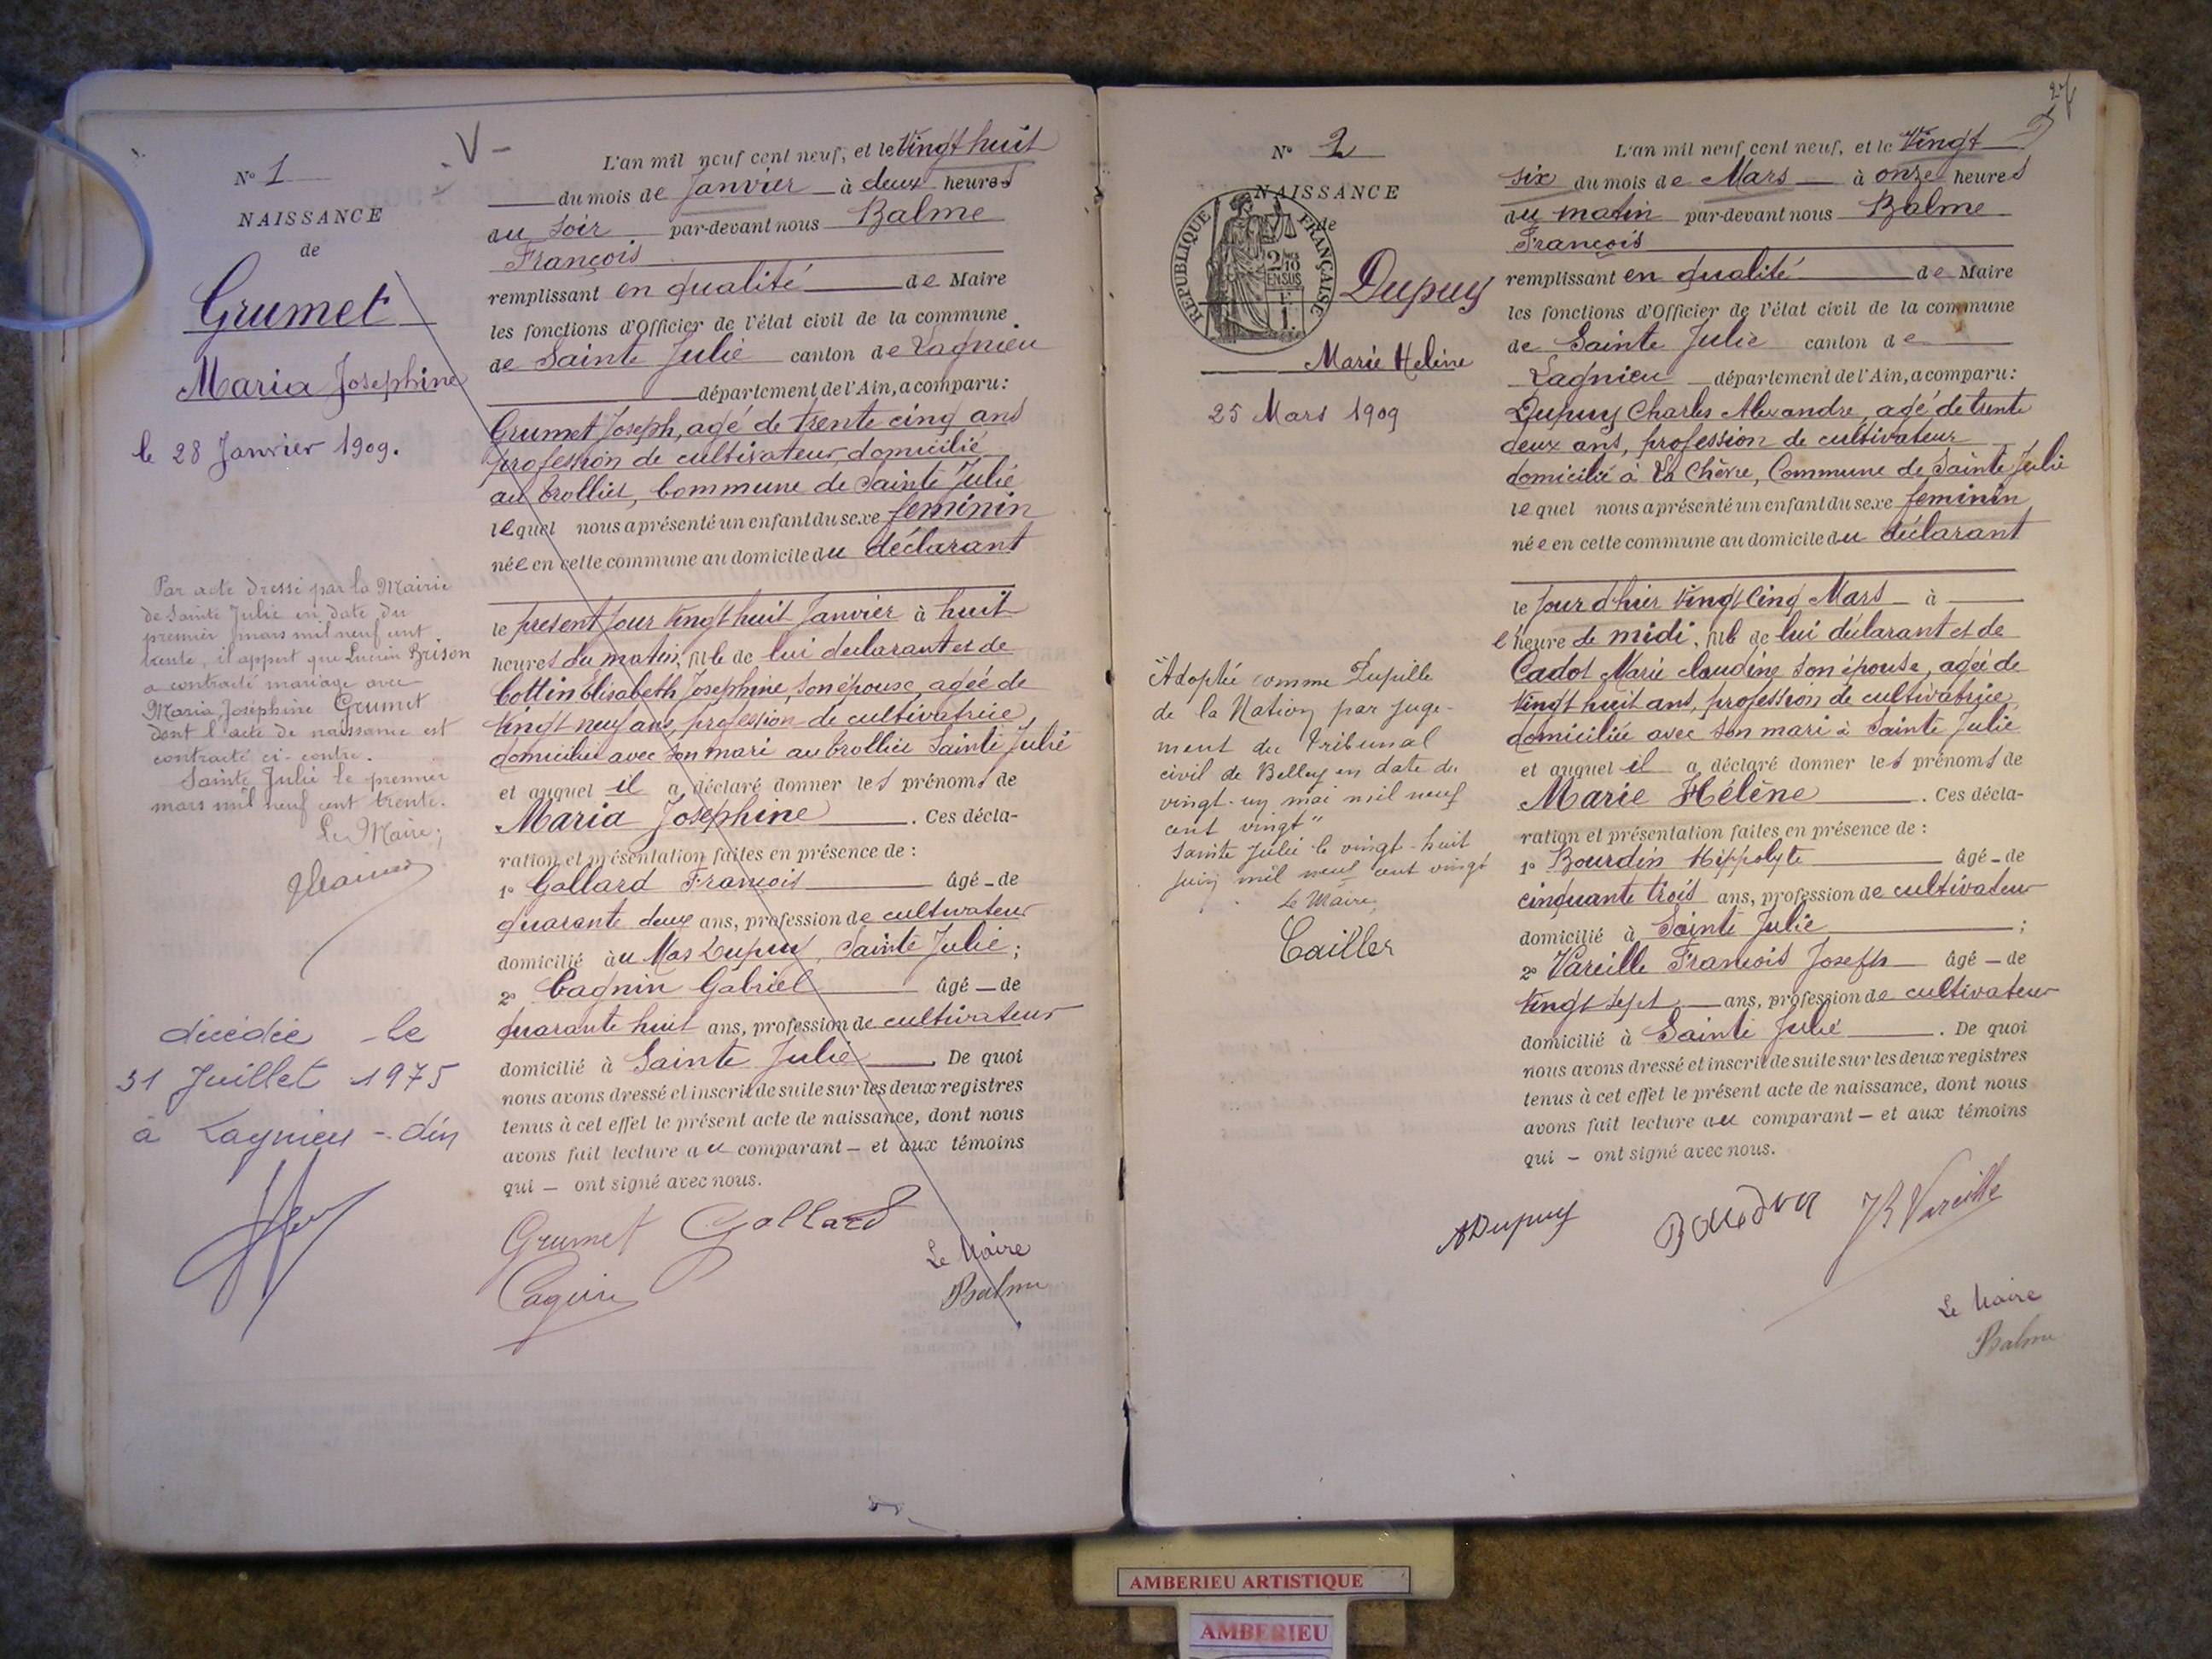 - V -
N° 1
NAISSANCE
de
Grumet
Maria Josephine
le 28 Janvier 1909.
Par acte dressé par la Mairie
de Sainte Julie en date du
premier mars mil neuf cent
trente, il appert que Lucien Brison
a contracté mariage avec
Maria Joséphine Grumet
dont l'acte de naissance est
contracté ci-contre.
Sainte Julie le premier
mars mil neuf cent trente.
Le Maire,
décédée le
31 Juillet 1975
à Lagnieu - Ain
L'an mil neuf cent neuf, et le Vingt huit
du mois de Janvier à deux heures
du soir par-devant nous Balme
François
remplissant en qualité de Maire
les fonctions d'Officier de l'état civil de la commune
de Sainte Julie canton de Lagnieu
département de l'Ain, a comparu:
Grumet Joseph, agé de trente cinq ans
profession de cultivateur, domicilié
au Trollier, Commune de Sainte Julie
lequel nous a présenté un enfant du sexe feminin
née en cette commune au domicile du déclarant
le present jour vingt huit Janvier à huit
heures du matin, fille de lui declarant et de
Cottin Elisabeth Josephine, son épouse, agée de
vingt neuf ans, profession de cultivatrice,
domiciliée avec son mari au Trollier Sainte Julie
et auquel il a déclaré donner les prénoms de
Maria Josephine. Ces décla-
ration et présentation faites en présence de :
1° Gallard François âgé de
quarante deux ans, profession de cultivateur
domicilié au Mas Dupuy, Sainte Julie;
2° Cagnin Gabriel âgé de
quarante huit ans, profession de cultivateur
domicilié à Sainte Julie. De quoi
nous avons dressé et inscrit de suite sur les deux registres
tenus à cet effet le présent acte de naissance, dont nous
avons fait lecture au comparant - et aux témoins
qui - ont signé avec nous.
Grumet Gallard
Cagnin
Le Maire
Balme
N° 2
NAISSANCE
de
REPUBLIQUE FRANÇAISE
2/10 EN SUS
1 F.
Dupuy
Marie Helène
25 Mars 1909
"Adoptée comme Pupille
de la Nation par juge-
ment du Tribunal
civil de Belley en date du
vingt-un mai mil neuf
cent vingt"
Sainte Julie le vingt-huit
juin mil neuf cent vingt
Le Maire,
Cailler
L'an mil neuf cent neuf, et le Vingt
six du mois de Mars à onze heures
du matin par-devant nous Balme
François
remplissant en qualité de Maire
les fonctions d'Officier de l'état civil de la commune
de Sainte Julie canton de
Lagnieu département de l'Ain, a comparu:
Dupuy Charles Alexandre, agé de trente
deux ans, profession de cultivateur
domicilié à La Chèvre, Commune de Sainte Julie
lequel nous a présenté un enfant du sexe feminin
née en cette commune au domicile du déclarant
le jour d'hier vingt cinq Mars à
l'heure de midi, fille de lui déclarant et de
Cadot Marie Claudine son épouse, agée de
vingt huit ans, profession de cultivatrice,
domiciliée avec son mari à Sainte Julie
et auquel il a déclaré donner les prénoms de
Marie Hélène. Ces décla-
ration et présentation faites en présence de :
1° Bourdin Hippolyte âgé - de
cinquante trois ans, profession de cultivateur
domicilié à Sainte Julie ;
2° Vareille François Joseph âgé - de
vingt sept ans, profession de cultivateur
domicilié à Sainte Julie. De quoi
nous avons dressé et inscrit de suite sur les deux registres
tenus à cet effet le présent acte de naissance, dont nous
avons fait lecture au comparant - et aux témoins
qui - ont signé avec nous.
ADupuy Bourdin Vareille
Le Maire
Balme
AMBERIEU ARTISTIQUE
AMBERIEU